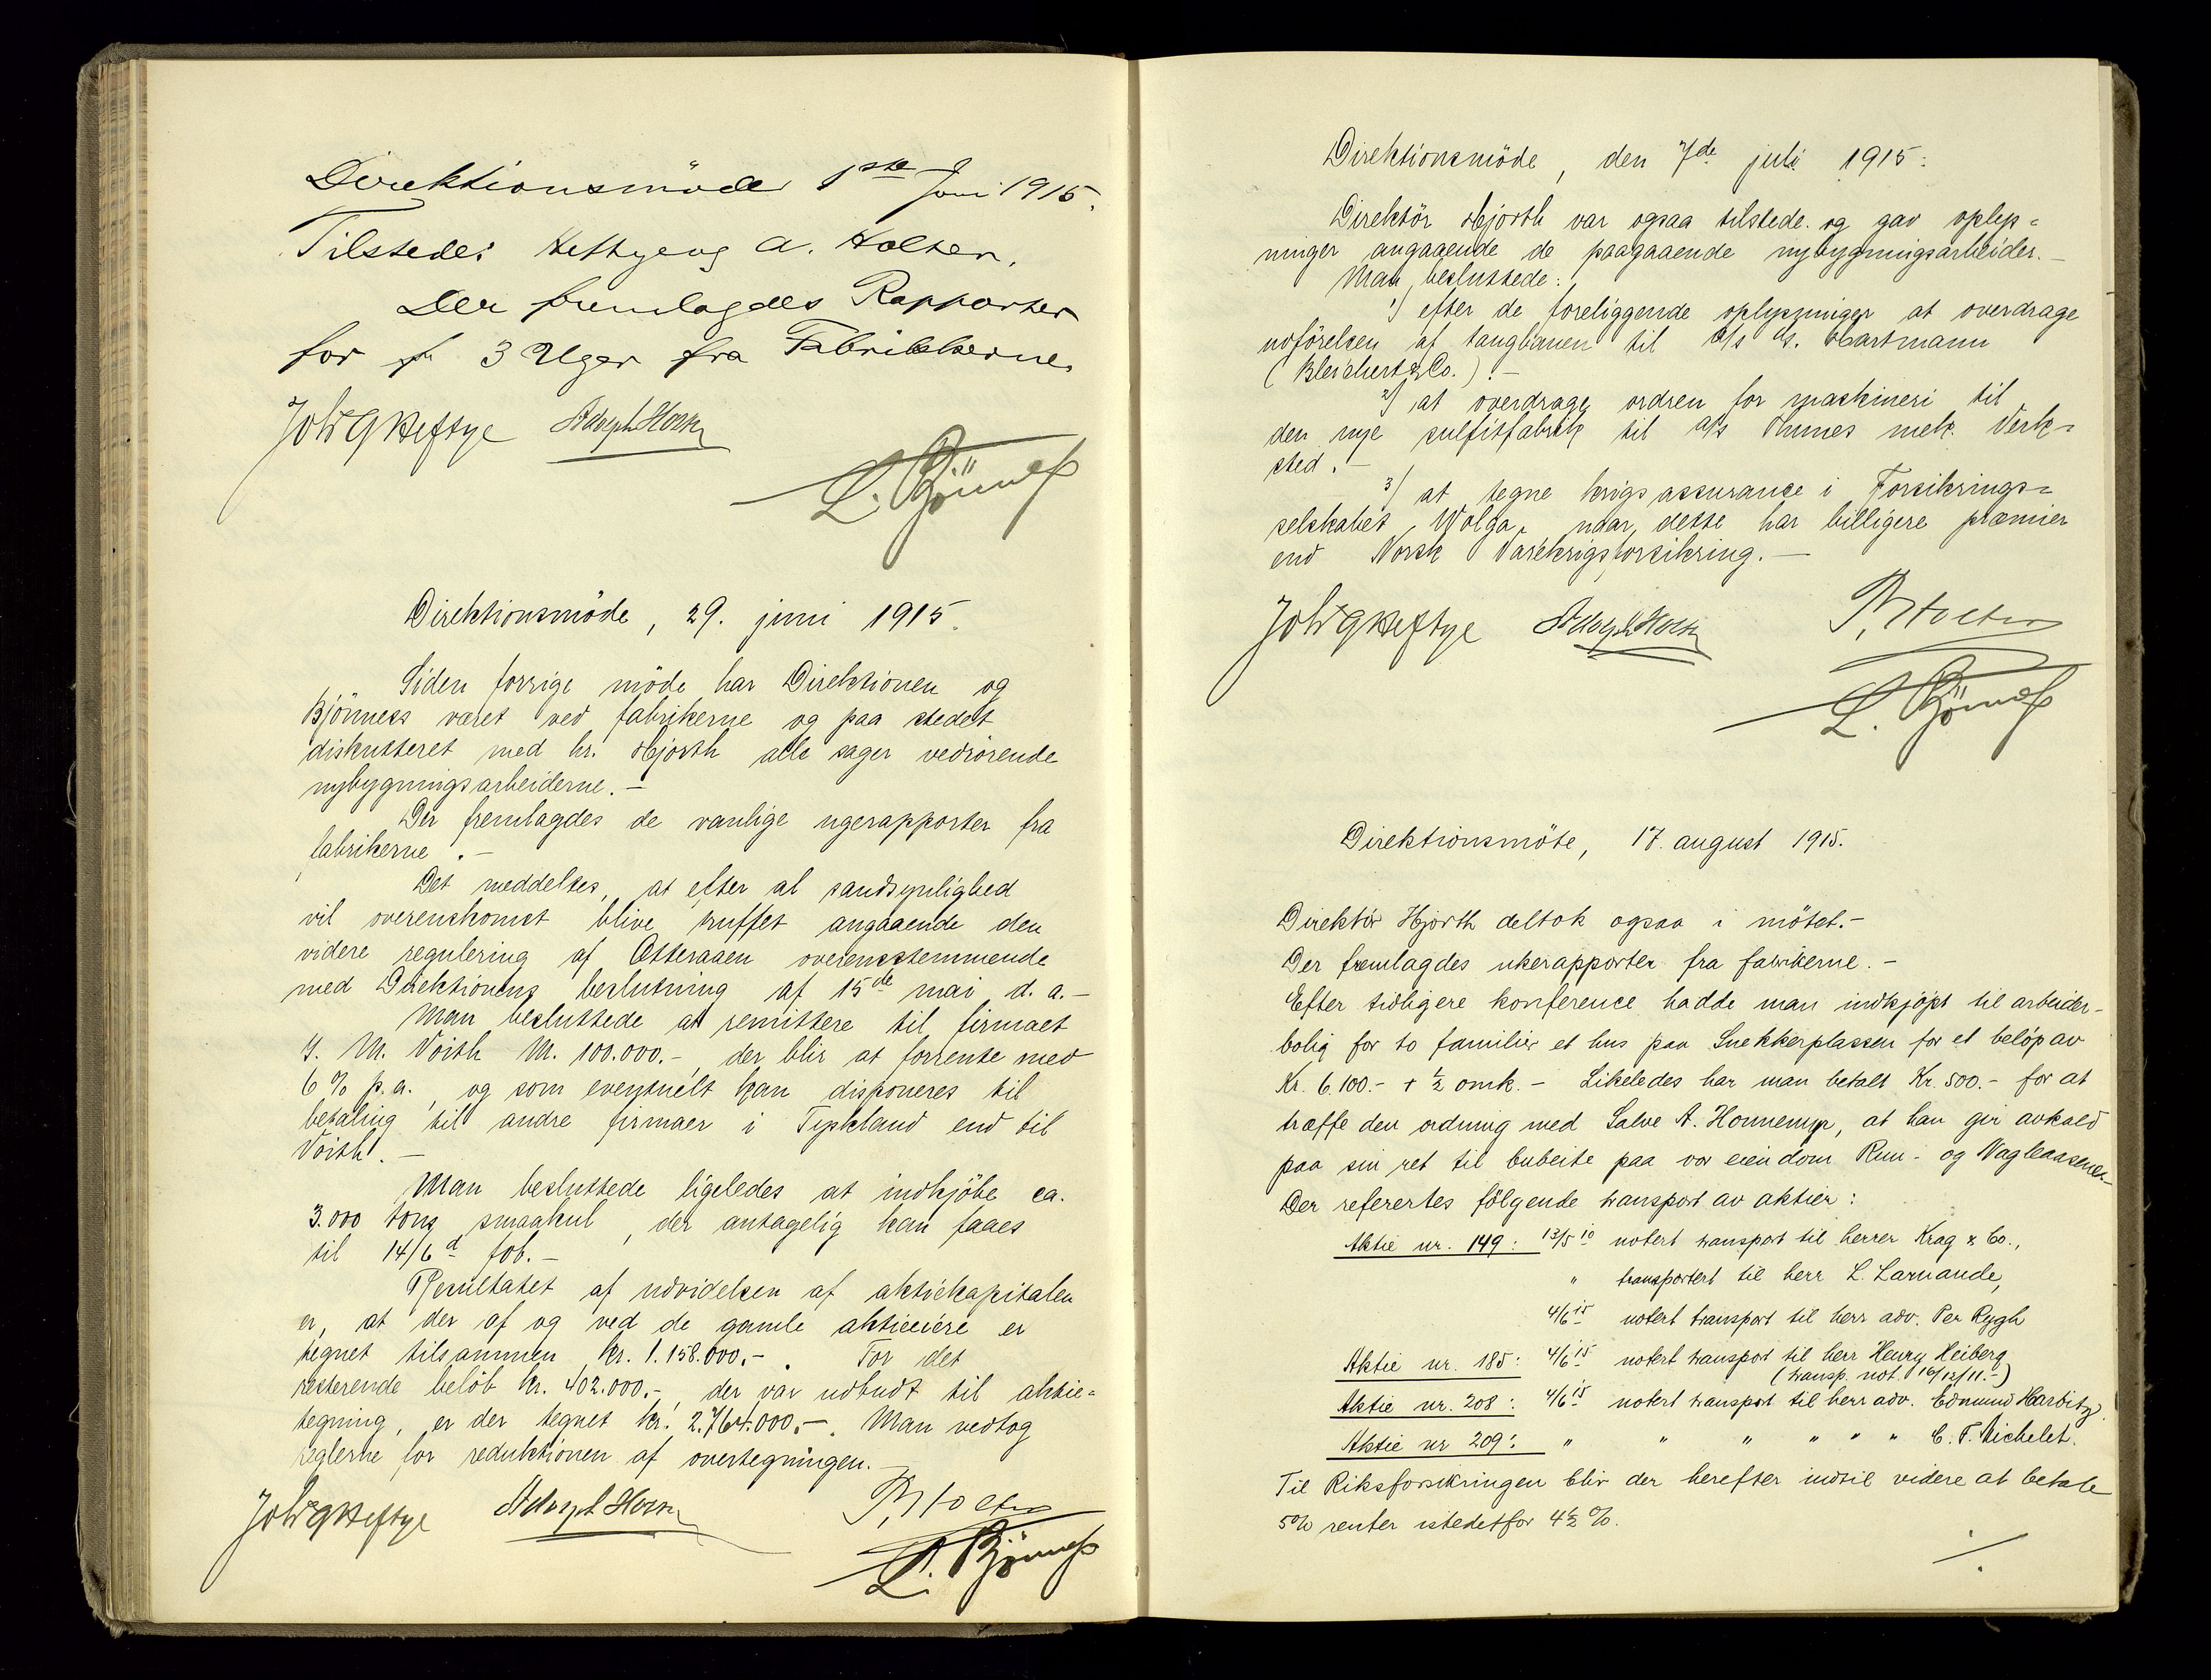 Direktionsmöde 1ste Juni 1915.
Tilstede: Heftye og A. Holter.
Der fremlagdes Rapporter
for 3 Uger fra Fabrikkerne.
Joh. G Heftye Adolph Horn
L. Bjönness
Direktionsmöde, 29. juni 1915.
Siden forrige möde har Direktionen og
Bjönness været ved fabrikerne og paa stedet
diskutteret med hr. Hjorth alle sager vedrörende
nybygningsarbeiderne.-
Der fremlagdes de vanlige ugerapporter fra
fabrikerne.-
Det meddeltes, at efter al sandsynlighed
vil overenskomst blive truffet angaaende den
videre regulering af Otteraaen overensstemmende
med Direktionens beslutning af 15de mai d. a.-
Man besluttede at remittere til firmaet
J. M. Voith M. 100.000.- der blir at forrente med
6% p.a., og som eventuelt kan disponeres til
betaling til andre firmaer i Tyskland end til
Voith.-
Man besluttede ligeledes at indkjöbe ca.
3.000 tons smaakul, der antagelig kan faaes
til 14/6d fob.-
Resultatet af udvidelsen af aktiekapitalen
er, at der af og ved de gamle aktieeiere er
tegnet tilsammen kr. 1.158.000.-. For det
resterende belöb kr. 402.000.-, der var udbudt til aktie=
tegning, er der tegnet kr. 2.764.000.-. Man vedtog
reglerne for reduktionen af overtegningen.-
Joh. G Heftye Adolph Horn P. Holter
L. Bjönness
Direktionsmöde, den 7de juli 1915:
Direktör Hjorth var ogsaa tilstede og gav oplys=
ninger angaaende de paagaaende nybygningsarbeider.-
Man besluttede:
1) efter de foreliggende oplysninger at overdrage
udförelsen af taugbanen til A/s G. Hartmann
(Bleichert & Co.).-
2) at overdrage ordren for maskineri til
den nye sulfitfabrik til A/s Thunes mek. Verk=
sted.-
3) at tegne krigsassurance i Forsikrings=
selskabet "Wolga", naar dette har billigere præmier
end Norsk Varekrigsforsikring.-
Joh. G Heftye Adolph Horn P. Holter
L. Bjönness
Direktionsmöte, 17. august 1915.
Direktör Hjorth deltok ogsaa i mötet.-
Der fremlagdes ukerapporter fra fabrikerne.-
Efter tidligere konference hadde man indkjöpt til arbeider-
bolig for to familier et hus paa Snekkerplassen for et belöp av
Kr. 6.100.- + ½ omk.- Likeledes har man betalt Kr. 500.- for at
træffe den ordning med Salve A. Honnemyr, at han gir avkald
paa sin ret til bubeite paa vor eiendom Ruu- og Vagleaasener.-
Der refertes fölgende transport av aktier:
Aktie nr. 149: 13/5 10 notert transport til herrer Krag & Co.,
" transportert til herr L. Larnaude,
4/6 15 notert transport til herr adv. Per Rygh
Aktie nr. 185: 4/6 15 notert transport til herr Henry Heiberg
(transp. not. 16/12/11.-)
Aktie nr. 208: 4/6 15 notert transport til herr adv. Edmund Harbitz.
Aktie nr 209: " " " " " " C. F. Michelet.
Til Riksforsikringen blir der herefter indtil videre at betale
5% renter istedetfor 4½%.
./.